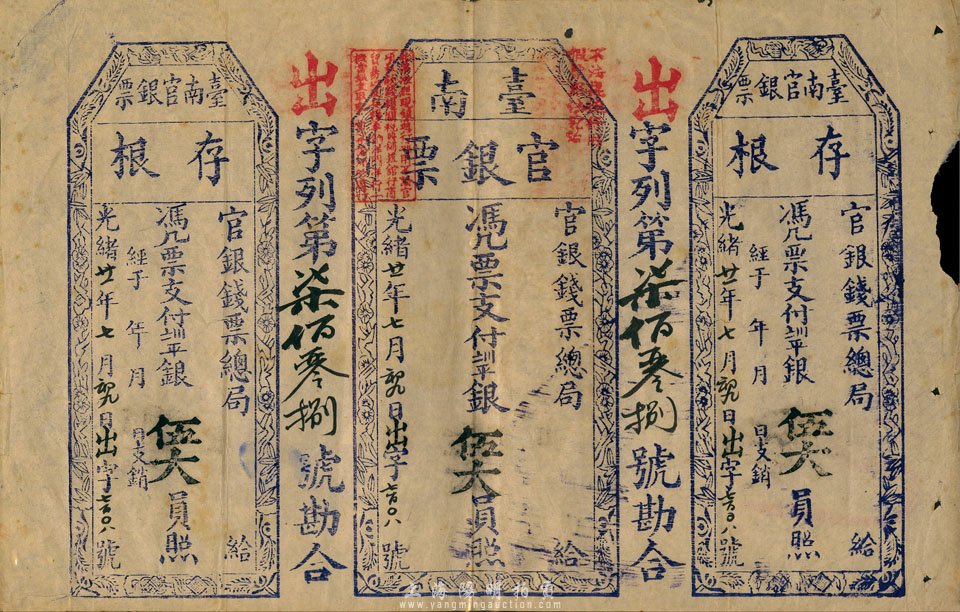 臺南官銀票
存根
官銀錢票總局 給
馮凡票支付訓平銀 伍大員照
經于 年 月 日支銷
光緒廿一年七月初九日出字七百〇八號
出字列第柒佰零捌號勘合
臺南
官銀票
官銀錢票總局 給
馮凡票支付訓平銀 伍大員照
光緒廿一年七月初九日出字七百〇八號
出字列第柒佰零捌號勘合
臺南官銀票
存根
官銀錢票總局 給
馮凡票支付訓平銀 伍大員照
經于 年 月 日支銷
光緒廿一年七月初九日出字七百〇八號
上海陽明拍賣
www.yangmingauction.com